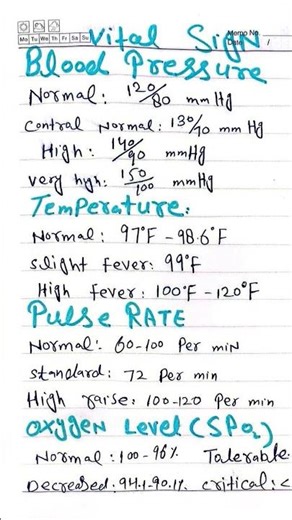 Memo No.
Mo Tu We Th Fr Sa Su
Date /
Vital Sign
Blood Pressure
Normal: 120/80 mm Hg
Contral Normal: 130/90 mm Hg
High: 140/90 mmHg
very hgh: 150/100 mmHg
Temperature:
Normal: 97°F - 98.6°F
slight fever: 99°F
High fever: 100°F - 120°F
Pulse RATE
Normal: 60-100 Per miN
standard: 72 Per min
High raise: 100-120 Per min
Oxygen Level (SPo₂)
Normal: 100-96% Talerable:
Decreased: 94%-90% critical: <